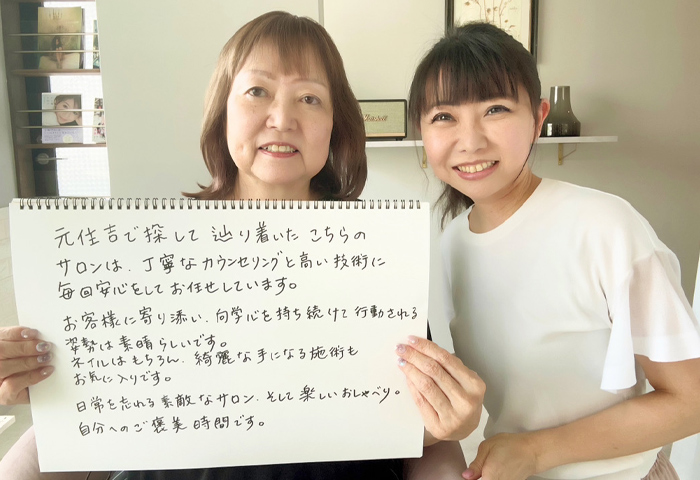 元住吉で探して辿り着いたこちらの
サロンは、丁寧なカウンセリングと高い技術に
毎回安心をしてお任せしています。
お客様に寄り添い、向学心を持ち続けて行動される
姿勢は素晴らしいです。
ネイルはもちろん、綺麗な手になる施術も
お気に入りです。
日常を忘れる素敵なサロン、そして楽しいおしゃべり。
自分へのご褒美時間です。